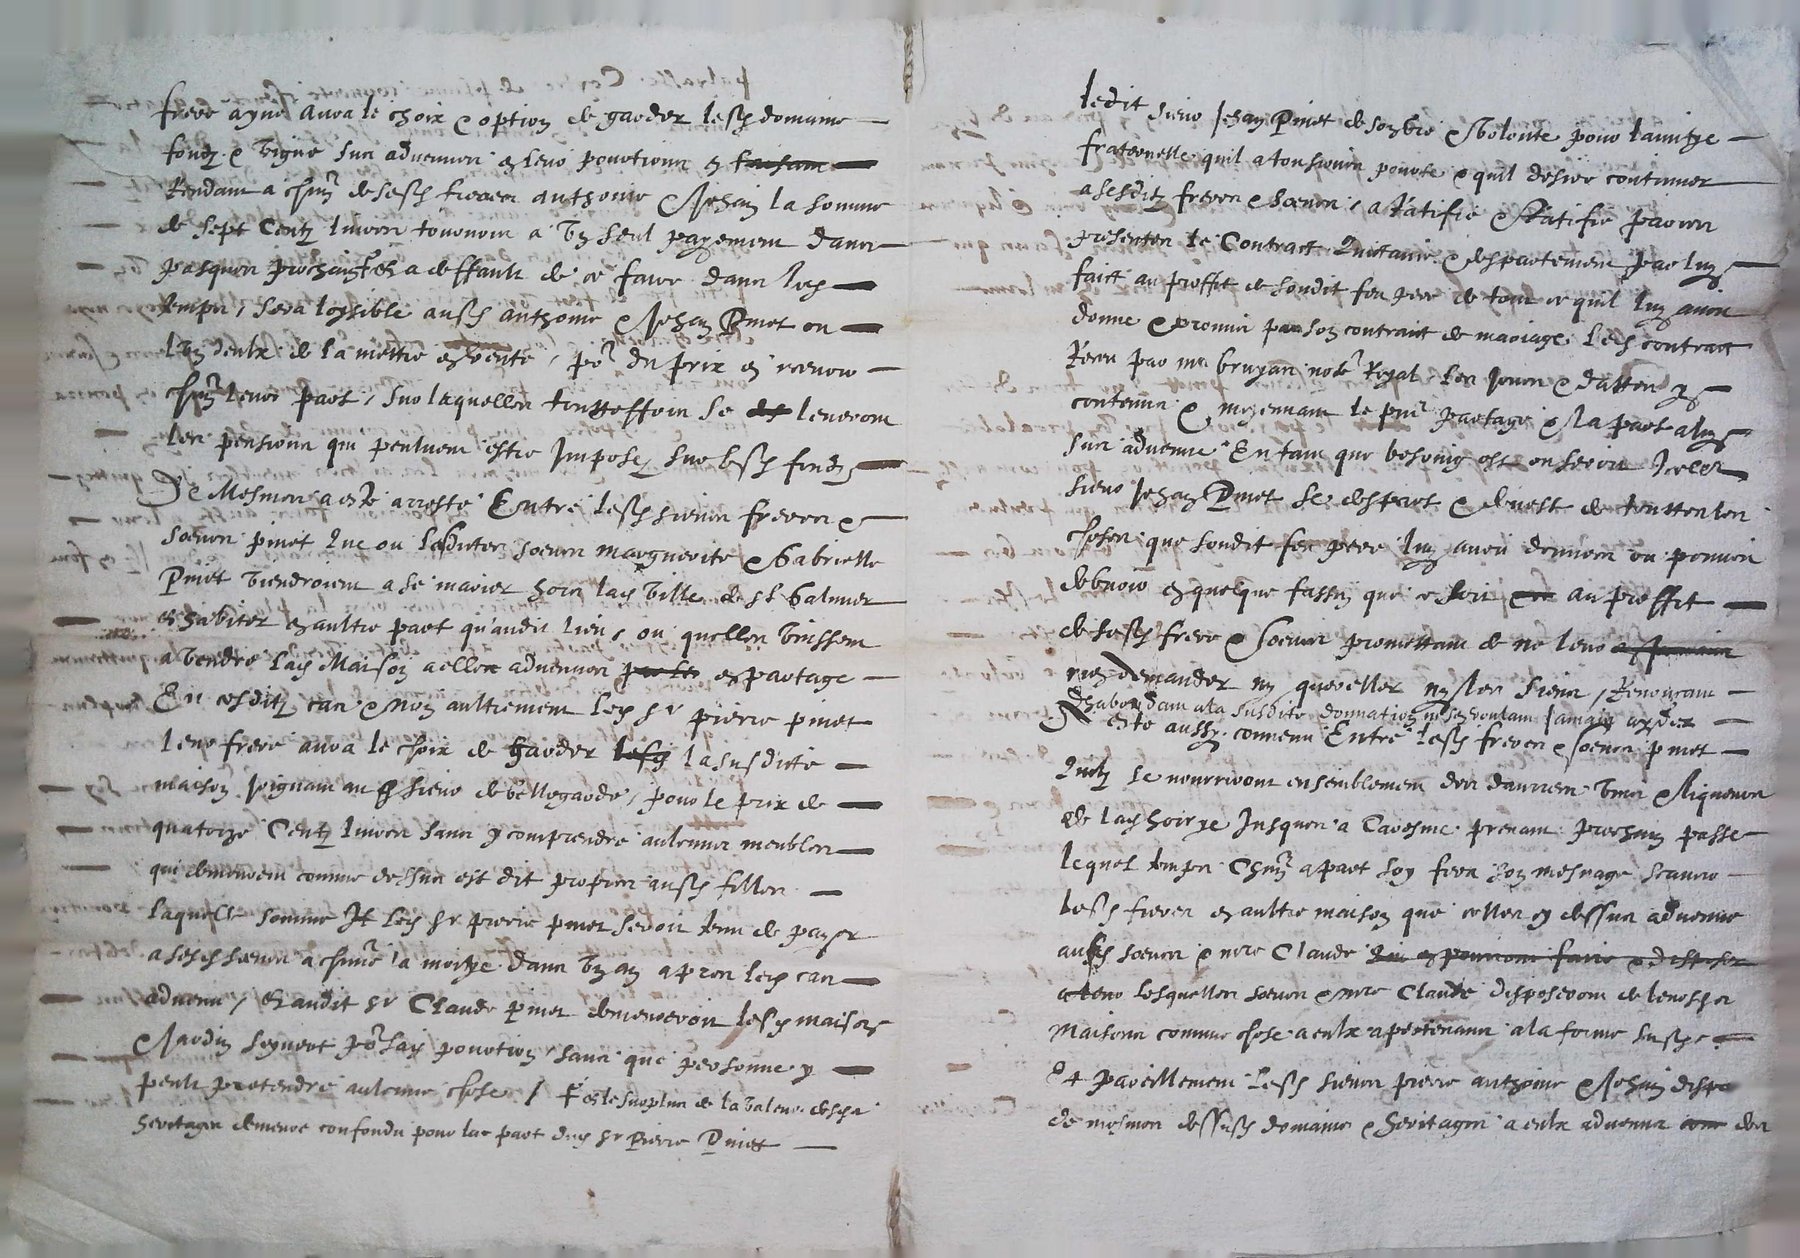 frere ayne aura le choix & option de garder lesd domaine
fondz & vigne sus advenuz en leur portions en faisant
Rendant a chun de sesd freres anthoine & Jehan la somme
de sept Centz livres tournois a ung seul payement dans
pasques prochain & a deffault de ce faire dans led
temps, sera loysible ausd anthoine & Jehan Pinet ou
lung deulx de la mettre en vente, por du prix en recevoir
chun leur part, sur lesquelles touttesfois se leveront
les pensions qui peulvent estre Imposez sur lesd fondz
De Mesmes a este arreste Entre lesd sieurs freres &
soeurs pinet que ou lesdittes soeurs marguerite & Gabrielle
Pinet viendroient a se marier hors lad ville de St Galmier
& habiter en aultre part qu'audit lieu, ou quelles vinssent
a vendre lad Maison a elles advenues par les en partage
En cesditz cas & non aultrement led sr pierre pinet
leur frere aura le choix de garder lesd la susditte
maison joignant au sieur de bellegarde, pour le prix de
quatorze Centz livres sans y comprendre aulcuns meubles
qui demeurent comme dessus est dit propres ausd filles
laquelle somme led sr pierre pinet seroit tenu de payer
a sesd soeurs a chune la moitye dans ung an apres led cas
advenu, & audit sr Claude pinet demeureroit lesd maison
& Jardin seyvert por sad portion sans que personne y
peult pretendre aulcune chose / & le surplus de la valeur desd
heritages demeure confondu pour la part dud sr Pierre Pinet
ledit sieur Jehan Pinet de son bon & volonte pour lamitye
fraternelle quil a tousjours porte & quil desire continuer
a sesditz freres & soeurs, a ratifie & Ratifie par ces
presentes le Contract Quittance & despartement par luy
faict au proffit de sondit feu pere de tout ce quil luy avoit
donne & promis par son contraict de mariage, led contract
Receu par me bruyas notre Royal les jours & dattes y
contenus & moyennant le pnt partage & la part a luy
sus advenue Entant que besoing est ou seroit Icelluy
sieur Jehan Pinet se despart & devest de touttes les
choses que sondit feu pere luy avoit donnees ou pouvoit
debvoir en quelque fasson que ce soit au proffit
de sesd frere & soeurs promettant de ne leur
rien demander ny quereller ny les siens, Renoncant
& habondant a la susdite donnation ne sen voulant jamais ayder
a este aussy convenu Entre lesd freres & soeurs pinet
Quilz se nourriront ensemblement des danrrees vins & liqueurs
de lad hoirye Jusques a Caresme prenant prochain passe
lequel temps Chun a part soy fera son mesnage scavoir
lesd freres en aultre maison que celles cy dessus advenue
ausd soeurs & mre Claude qui en pourront faire & disposer
a leur lesquelles soeurs & mre Claude disposeront de leursd
maisons comme chose a eulx apertenant a la forme susd
Et pareillement lesd sieurs pierre anthoine & Jehan dispo
de mesmes dessusd domaine & heritages a eulx advenus des